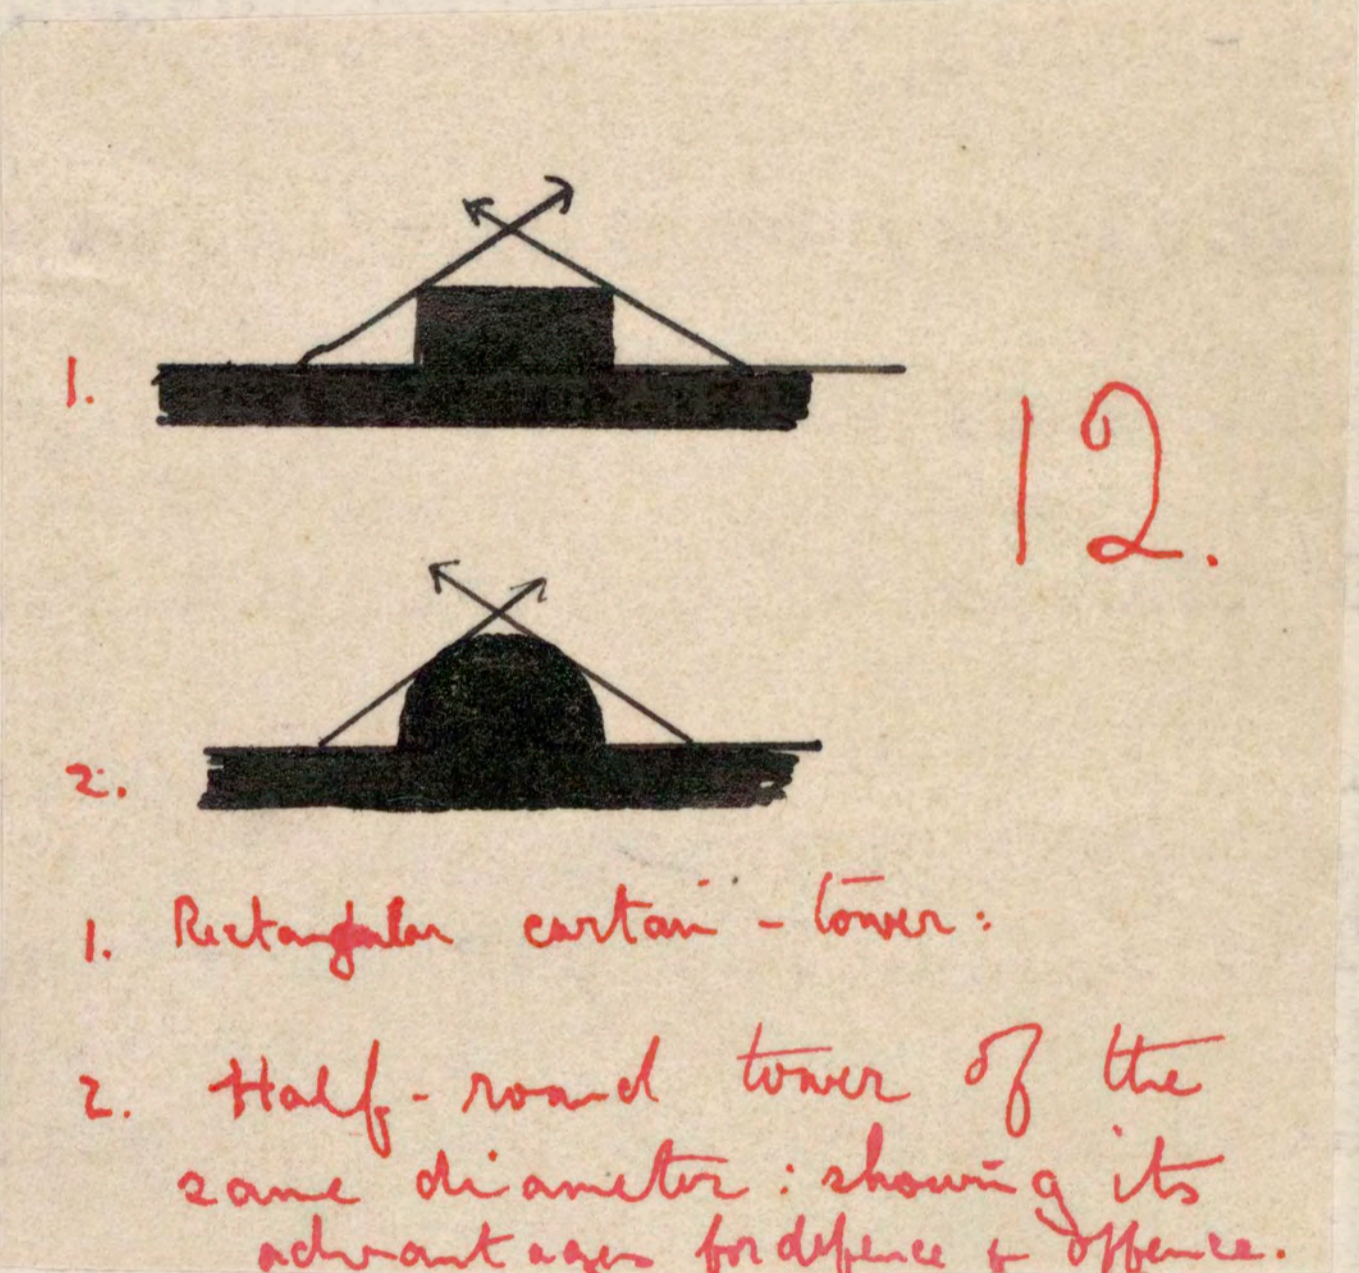 1.
12.
2.
1. Rectangular curtain-tower:
2. Half-round tower of the
same diameter: showing its
advantages for defence & offence.